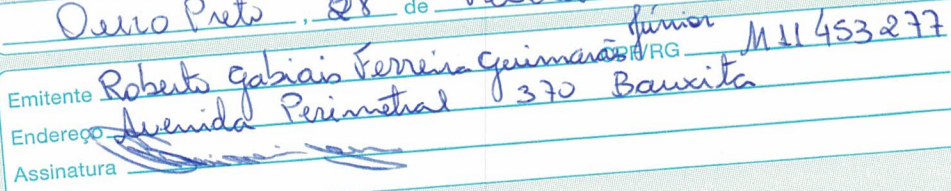 Ouro Preto, 28 de
Júnior
Emitente Roberto Gabiais Ferreira Guimarães CPF/RG M11453277
Endereço Avenida Perimetral 370 Bauxita
Assinatura